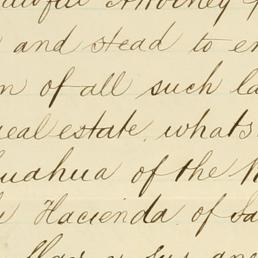 Attorney
and stead to en
n of all such la
real estate, whats
uahua of the R
Hacienda of Sa